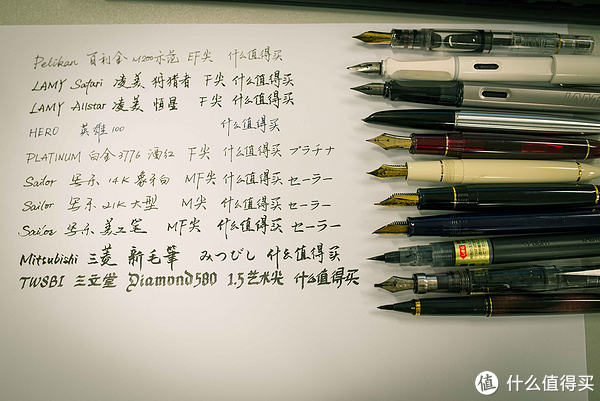 Pelikan 百利金 M200示范 EF尖 什么值得买
LAMY Safari 凌美 狩猎者 F尖 什么值得买
LAMY Allstar 凌美 恒星 F尖 什么值得买
HERO 英雄100 什么值得买
PLATINUM 白金3776 酒红 F尖 什么值得买 プラチナ
Sailor 写乐 14K 象牙白 MF尖 什么值得买 セーラー
Sailor 写乐 21K 大型 M尖 什么值得买 セーラー
Sailor 写乐 美工笔 MF尖 什么值得买 セーラー
Mitsubishi 三菱 新毛筆 みつびし 什么值得买
TWSBI 三文堂 Diamond580 1.5艺术尖 什么值得买
值 什么值得买